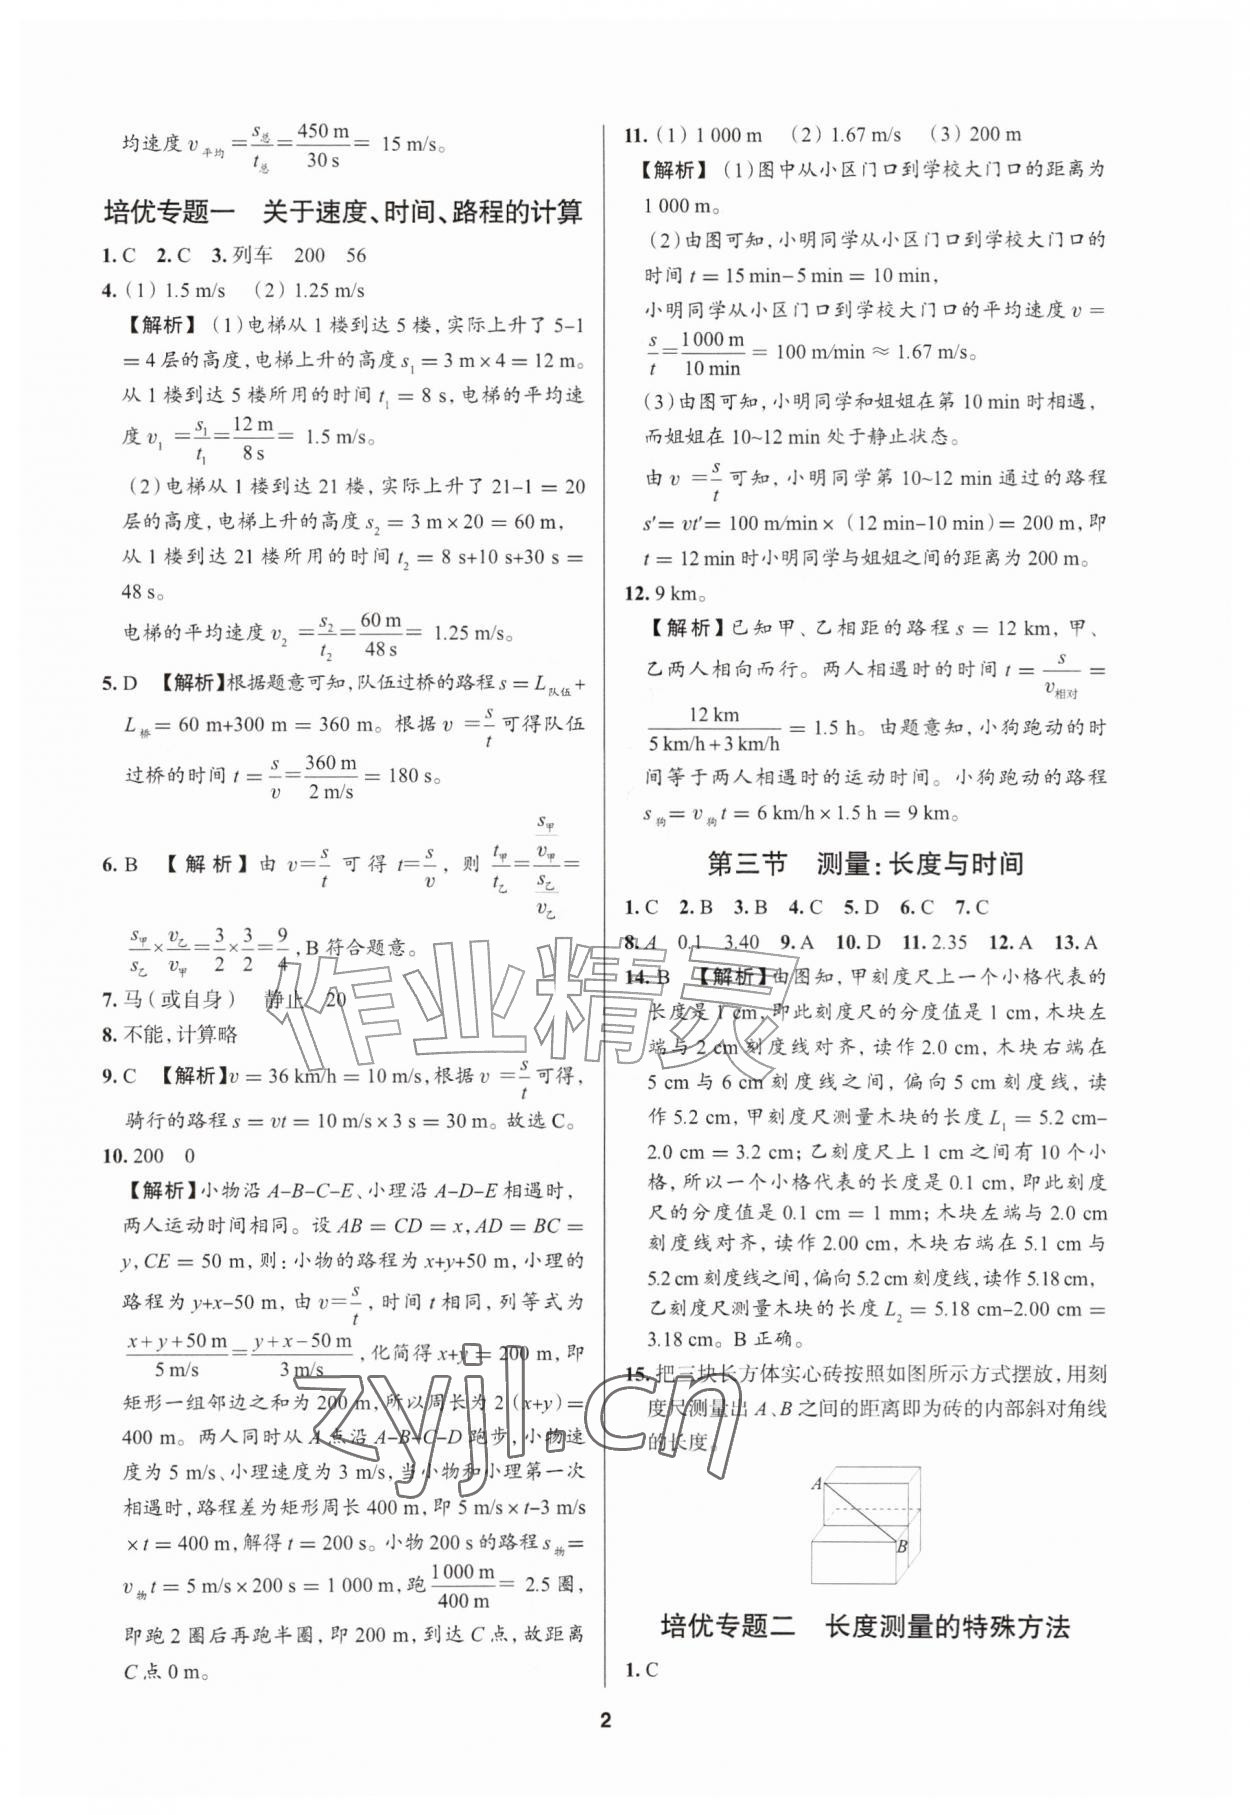 均速度 v平均 = s总/t总 = 450 m/30 s = 15 m/s。
培优专题一　关于速度、时间、路程的计算
1. C　2. C　3. 列车　200　56
4. (1) 1.5 m/s　(2) 1.25 m/s
【解析】(1)电梯从 1 楼到达 5 楼,实际上升了 5-1
= 4 层的高度,电梯上升的高度 s₁ = 3 m × 4 = 12 m。
从 1 楼到达 5 楼所用的时间 t₁ = 8 s,电梯的平均速
度 v₁ = s₁/t₁ = 12 m/8 s = 1.5 m/s。
(2)电梯从 1 楼到达 21 楼,实际上升了 21-1 = 20
层的高度,电梯上升的高度 s₂ = 3 m×20 = 60 m,
从 1 楼到达 21 楼所用的时间 t₂ = 8 s+10 s+30 s =
48 s。
电梯的平均速度 v₂ = s₂/t₂ = 60 m/48 s = 1.25 m/s。
5. D　【解析】根据题意可知,队伍过桥的路程 s = L队伍+
L桥 = 60 m+300 m = 360 m。根据 v = s/t 可得队伍
过桥的时间 t = s/v = 360 m/2 m/s = 180 s。
6. B　【解析】由 v=s/t 可得 t=s/v,则 t甲/t乙 = (s甲/v甲)/(s乙/v乙) =
s甲/s乙 × v乙/v甲 = 3/2 × 3/2 = 9/4,B 符合题意。
7. 马(或自身)　静止　20
8. 不能,计算略
9. C　【解析】v = 36 km/h = 10 m/s,根据 v = s/t 可得,
骑行的路程 s = vt = 10 m/s × 3 s = 30 m。故选 C。
10. 200　0
【解析】小物沿 A-B-C-E、小理沿 A-D-E 相遇时,
两人运动时间相同。设 AB = CD = x,AD = BC =
y,CE = 50 m,则:小物的路程为 x+y+50 m,小理的
路程为 y+x-50 m,由 v=s/t,时间 t 相同,列等式为
(x+y+50 m)/(5 m/s) = (y+x-50 m)/(3 m/s),化简得 x+y = 200 m,即
矩形一组邻边之和为 200 m,所以周长为 2(x+y) =
400 m。两人同时从 A 点沿 A-B-C-D 跑步,小物速
度为 5 m/s、小理速度为 3 m/s,当小物和小理第一次
相遇时,路程差为矩形周长 400 m,即 5 m/s × t-3 m/s
× t = 400 m,解得 t = 200 s。小物 200 s 的路程 s物 =
v物 t = 5 m/s × 200 s = 1 000 m,跑 1 000 m/400 m = 2.5 圈,
即跑 2 圈后再跑半圈,即 200 m,到达 C 点,故距离
C 点 0 m。
11. (1) 1 000 m　(2) 1.67 m/s　(3) 200 m
【解析】(1)图中从小区门口到学校大门口的距离为
1 000 m。
(2)由图可知,小明同学从小区门口到学校大门口的
时间 t = 15 min-5 min = 10 min,
小明同学从小区门口到学校大门口的平均速度 v =
s/t = 1 000 m/10 min = 100 m/min ≈ 1.67 m/s。
(3)由图可知,小明同学和姐姐在第 10 min 时相遇,
而姐姐在 10~12 min 处于静止状态。
由 v = s/t 可知,小明同学第 10~12 min 通过的路程
s′= vt′= 100 m/min×(12 min-10 min)= 200 m,即
t = 12 min 时小明同学与姐姐之间的距离为 200 m。
12. 9 km。
【解析】已知甲、乙相距的路程 s = 12 km,甲、
乙两人相向而行。两人相遇时的时间 t = s/v相对 =
12 km/(5 km/h+3 km/h) = 1.5 h。由题意知,小狗跑动的时
间等于两人相遇时的运动时间。小狗跑动的路程
s狗 = v狗 t = 6 km/h × 1.5 h = 9 km。
第三节　测量:长度与时间
1. C　2. B　3. B　4. C　5. D　6. C　7. C
8. A　0.1　3.40　9. A　10. D　11. 2.35　12. A　13. A
14. B　【解析】由图知,甲刻度尺上一个小格代表的
长度是 1 cm,即此刻度尺的分度值是 1 cm,木块左
端与 2 cm 刻度线对齐,读作 2.0 cm,木块右端在
5 cm 与 6 cm 刻度线之间,偏向 5 cm 刻度线,读
作 5.2 cm,甲刻度尺测量木块的长度 L₁ = 5.2 cm-
2.0 cm = 3.2 cm;乙刻度尺上 1 cm 之间有 10 个小
格,所以一个小格代表的长度是 0.1 cm,即此刻度
尺的分度值是 0.1 cm = 1 mm;木块左端与 2.0 cm
刻度线对齐,读作 2.00 cm,木块右端在 5.1 cm 与
5.2 cm 刻度线之间,偏向 5.2 cm 刻度线,读作 5.18 cm,
乙刻度尺测量木块的长度 L₂ = 5.18 cm-2.00 cm =
3.18 cm。B 正确。
15. 把三块长方体实心砖按照如图所示方式摆放,用刻
度尺测量出 A、B 之间的距离即为砖的内部斜对角线
的长度。
A
B
培优专题二　长度测量的特殊方法
1. C
2
作业精灵
zyjl.cn